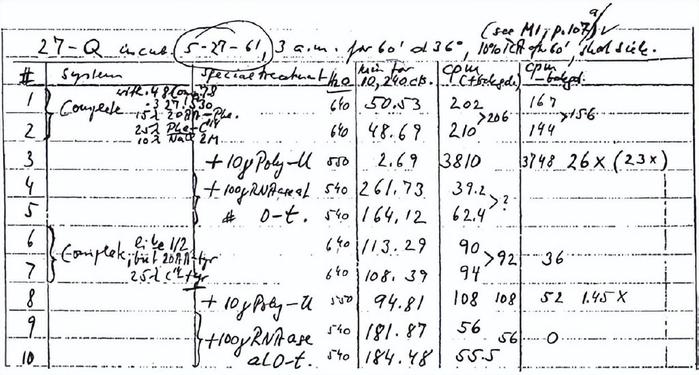 (see M1, p.107)
27-Q incub. 5-27-61, 3 a.m. for 60' at 36°, 10% TCA for 60',
# System Special treatment H2O min. for 10,240 cts. cpm (+ bckgd.) cpm - bckgd.
1 Complete 640 50.53 202 167
>206 >156
15λ 20AA-Phe.
25λ Phe-C14
2 640 48.69 210 144
3 +10γ Poly-U 550 2.69 3810 3748 26x (23x)
4 +100γ RNAase at 540 261.73 39.2
>?
5 0-t. 540 164.12 62.4
6 Complete like 1/2 640 113.29 90
but 20AA-tyr >92 36
7 25λ C14-tyr 640 108.39 94
8 +10γ Poly-U 550 94.81 108 108 52 1.45x
9 +100γ RNAase 540 181.87 56
56 0
10 at 0-t. 540 184.48 55.5